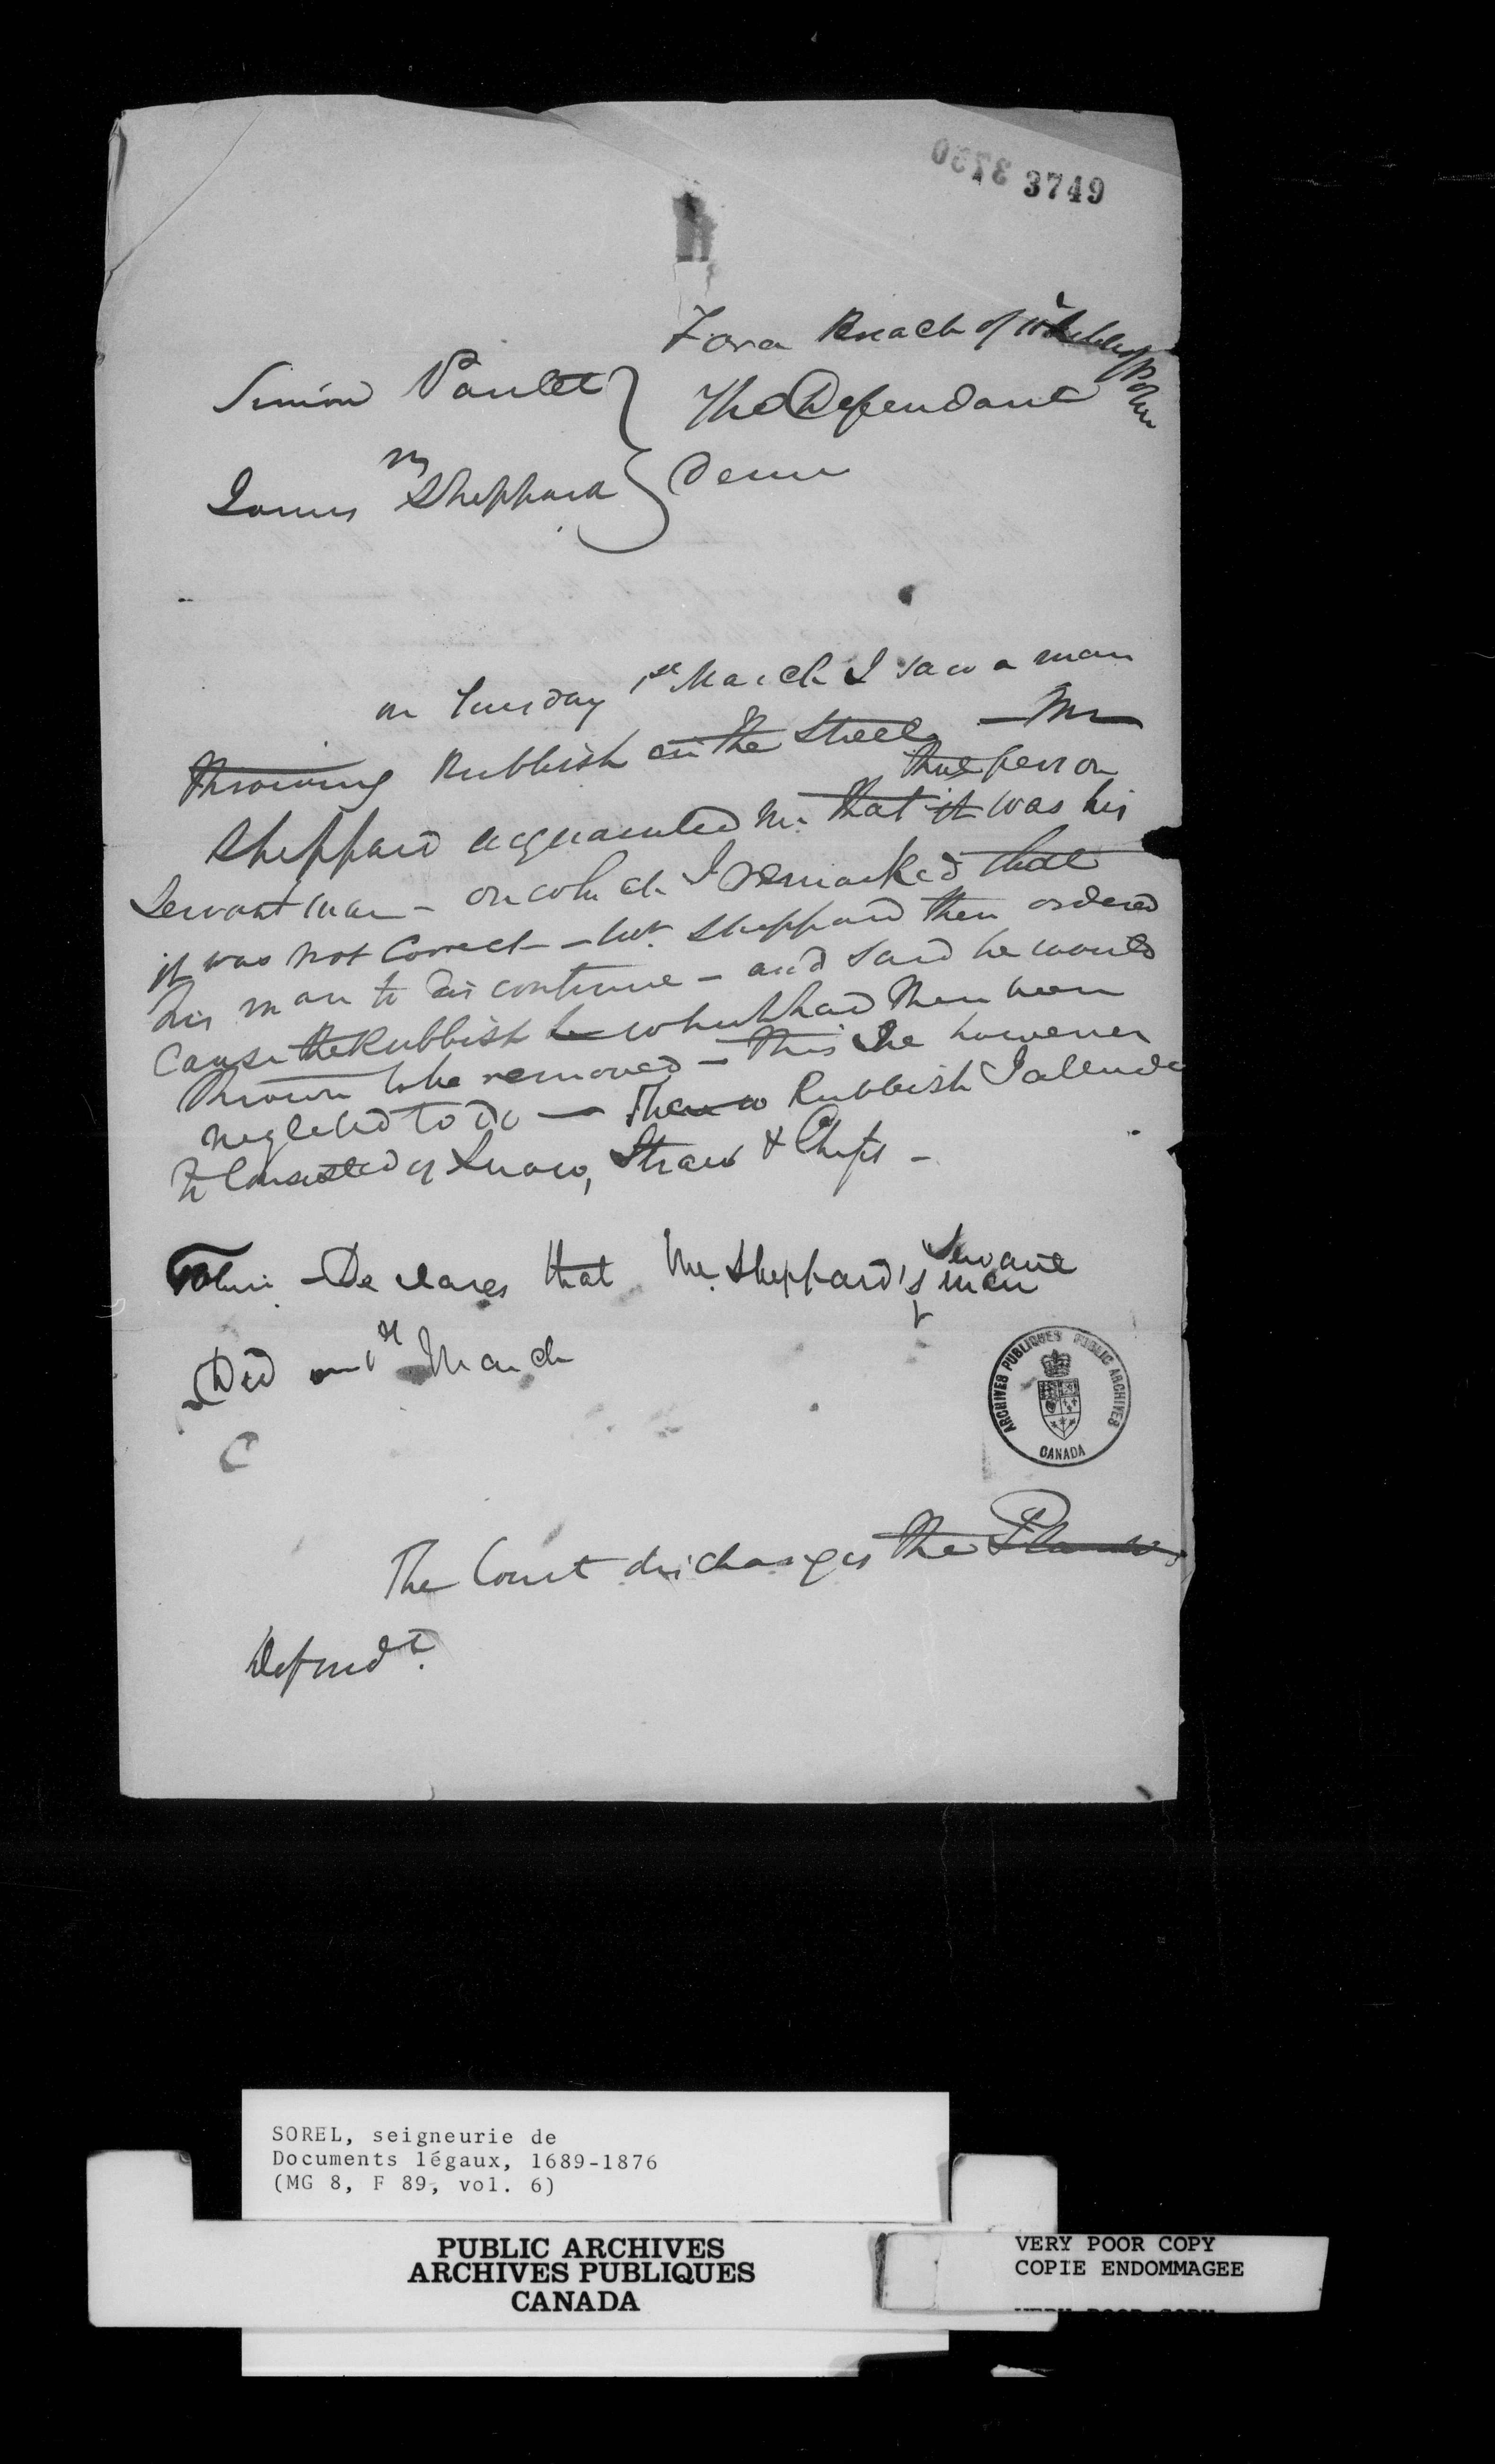 3750 3749
For a Breach of the Rules of Police
Simon Paulet
The Defendant
vs
James Sheppard
Denies
on Tuesday 1st March I saw a man
throwing Rubbish in the Street — Mr
that person
Sheppard acquainted me that it was his
Servant man - on which I remarked that
it was not Correct - Mr. Sheppard then ordered
his man to discontinue - and said he would
Cause the Rubbish he which had then been
thrown to be removed - This he however
neglected to do — The Rubbish I allude
to Consisted of Snow, Straw & Chips -
Declares that Mr. Sheppard's man
Servant
Did on 1st March
C
The Court discharges the
Defendt.
ARCHIVES PUBLIQUES PUBLIC ARCHIVES
CANADA
SOREL, seigneurie de
Documents légaux, 1689-1876
(MG 8, F 89, vol. 6)
PUBLIC ARCHIVES
ARCHIVES PUBLIQUES
CANADA
VERY POOR COPY
COPIE ENDOMMAGEE
VERY POOR COPY